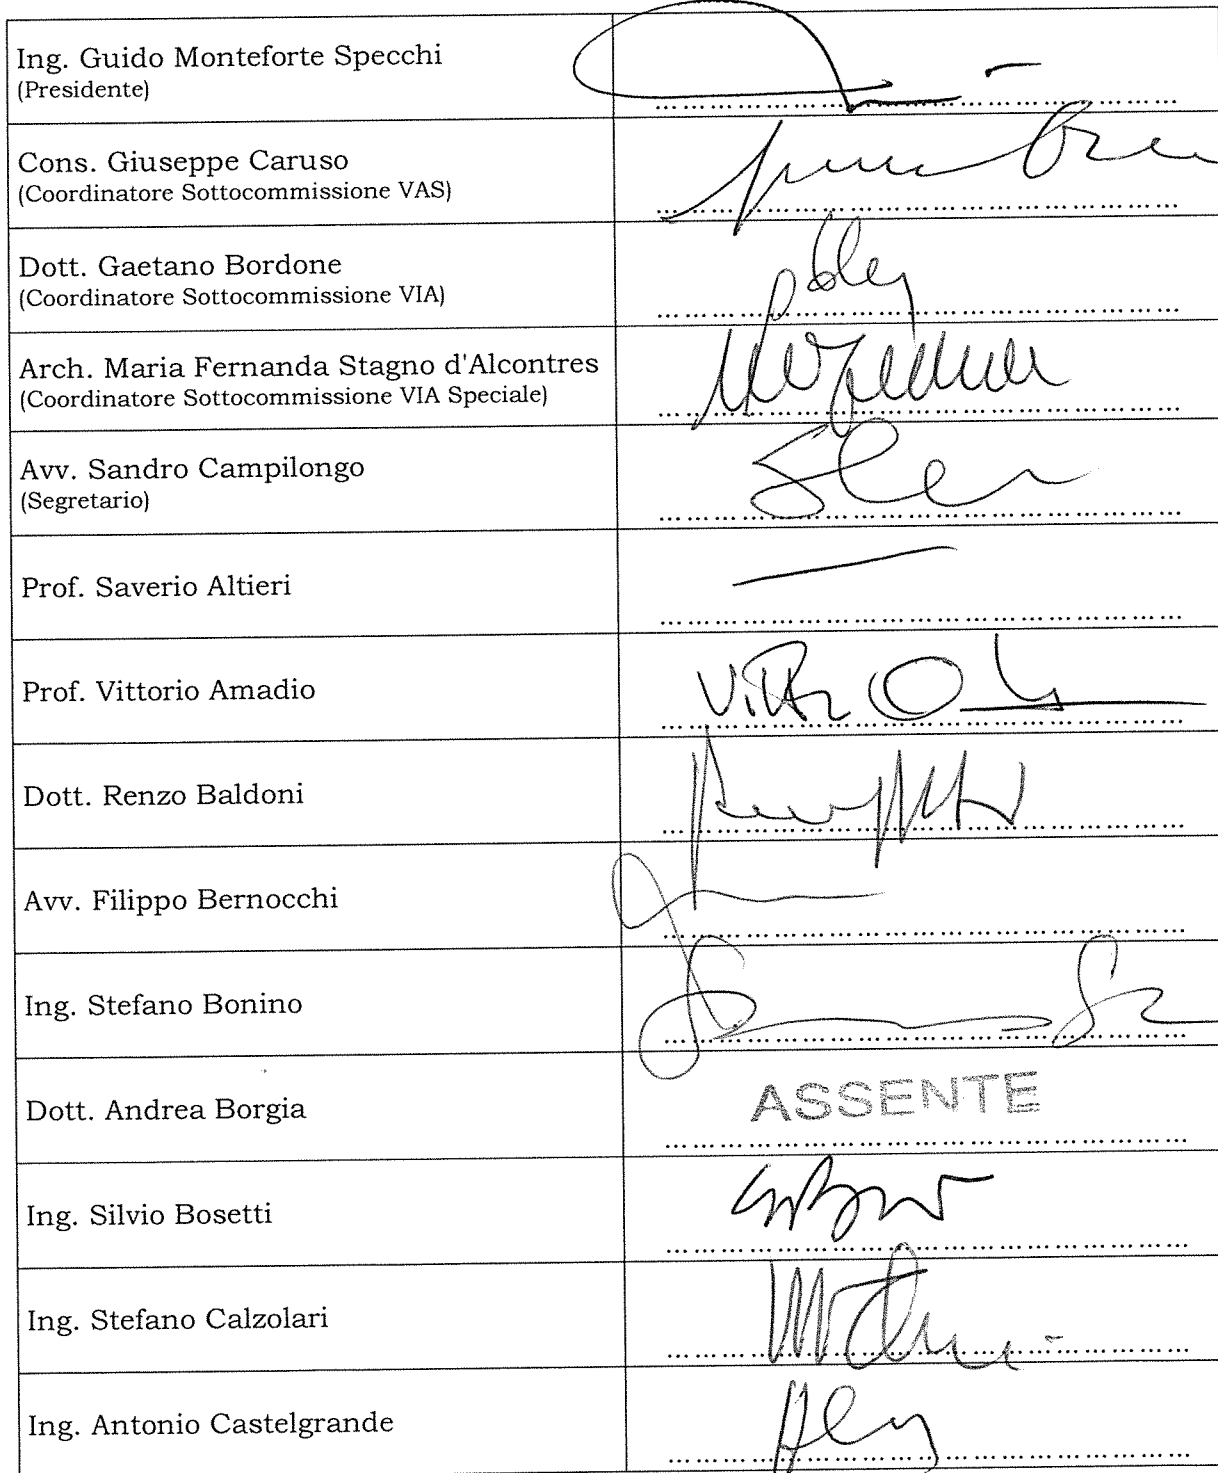 Ing. Guido Monteforte Specchi
(Presidente)
Cons. Giuseppe Caruso
(Coordinatore Sottocommissione VAS)
Dott. Gaetano Bordone
(Coordinatore Sottocommissione VIA)
Arch. Maria Fernanda Stagno d'Alcontres
(Coordinatore Sottocommissione VIA Speciale)
Avv. Sandro Campilongo
(Segretario)
Prof. Saverio Altieri
Prof. Vittorio Amadio
Dott. Renzo Baldoni
Avv. Filippo Bernocchi
Ing. Stefano Bonino
Dott. Andrea Borgia
ASSENTE
Ing. Silvio Bosetti
Ing. Stefano Calzolari
Ing. Antonio Castelgrande